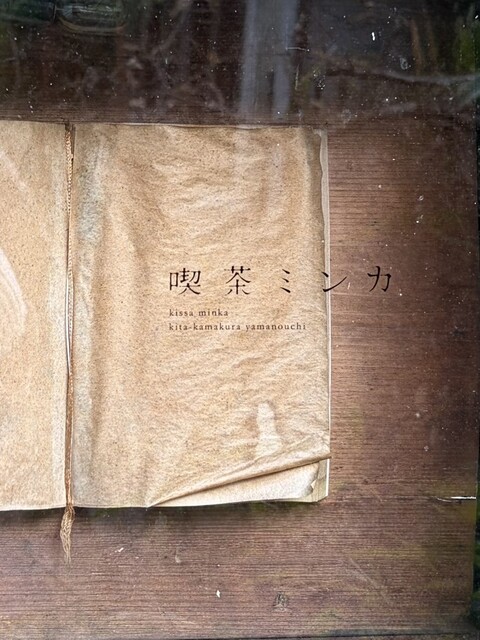 喫茶ミンカ
kissa minka
kita-kamakura yamanouchi